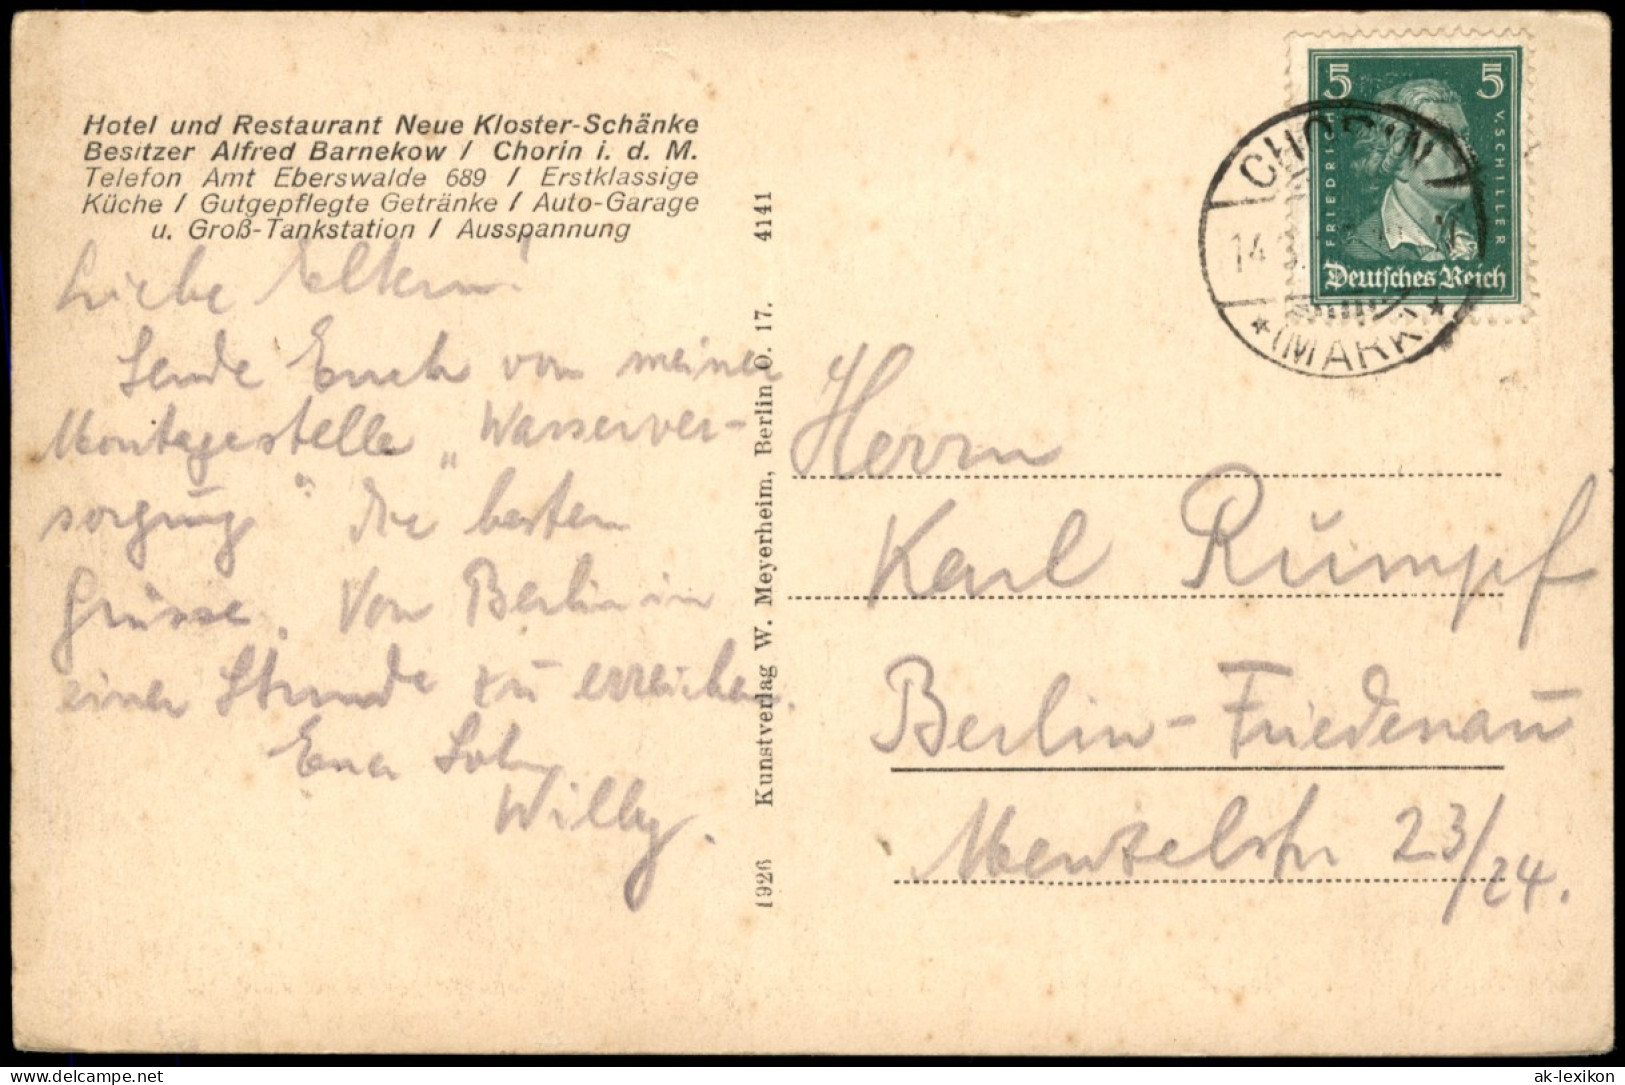 Hotel und Restaurant Neue Kloster-Schänke
Besitzer Alfred Barnekow / Chorin i. d. M.
Telefon Amt Eberswalde 689 / Erstklassige
Küche / Gutgepflegte Getränke / Auto-Garage
u. Groß-Tankstation / Ausspannung
Liebe Eltern!
Sende Euch von meiner
Montagestelle „Wasserver-
sorgung" die besten
Grüsse. Von Berlin in
einer Stunde zu erreichen.
Euer Sohn
Willy.
1926 Kunstverlag W. Meyerheim, Berlin O. 17. 4141
5 5
FRIEDRICH V. SCHILLER
Deutsches Reich
CHORIN
14
(MARK)
Herrn
Karl Rumpf
Berlin-Friedenau
Menzelstr 23/24.
DELCAMPE.NET
ak-lexikon